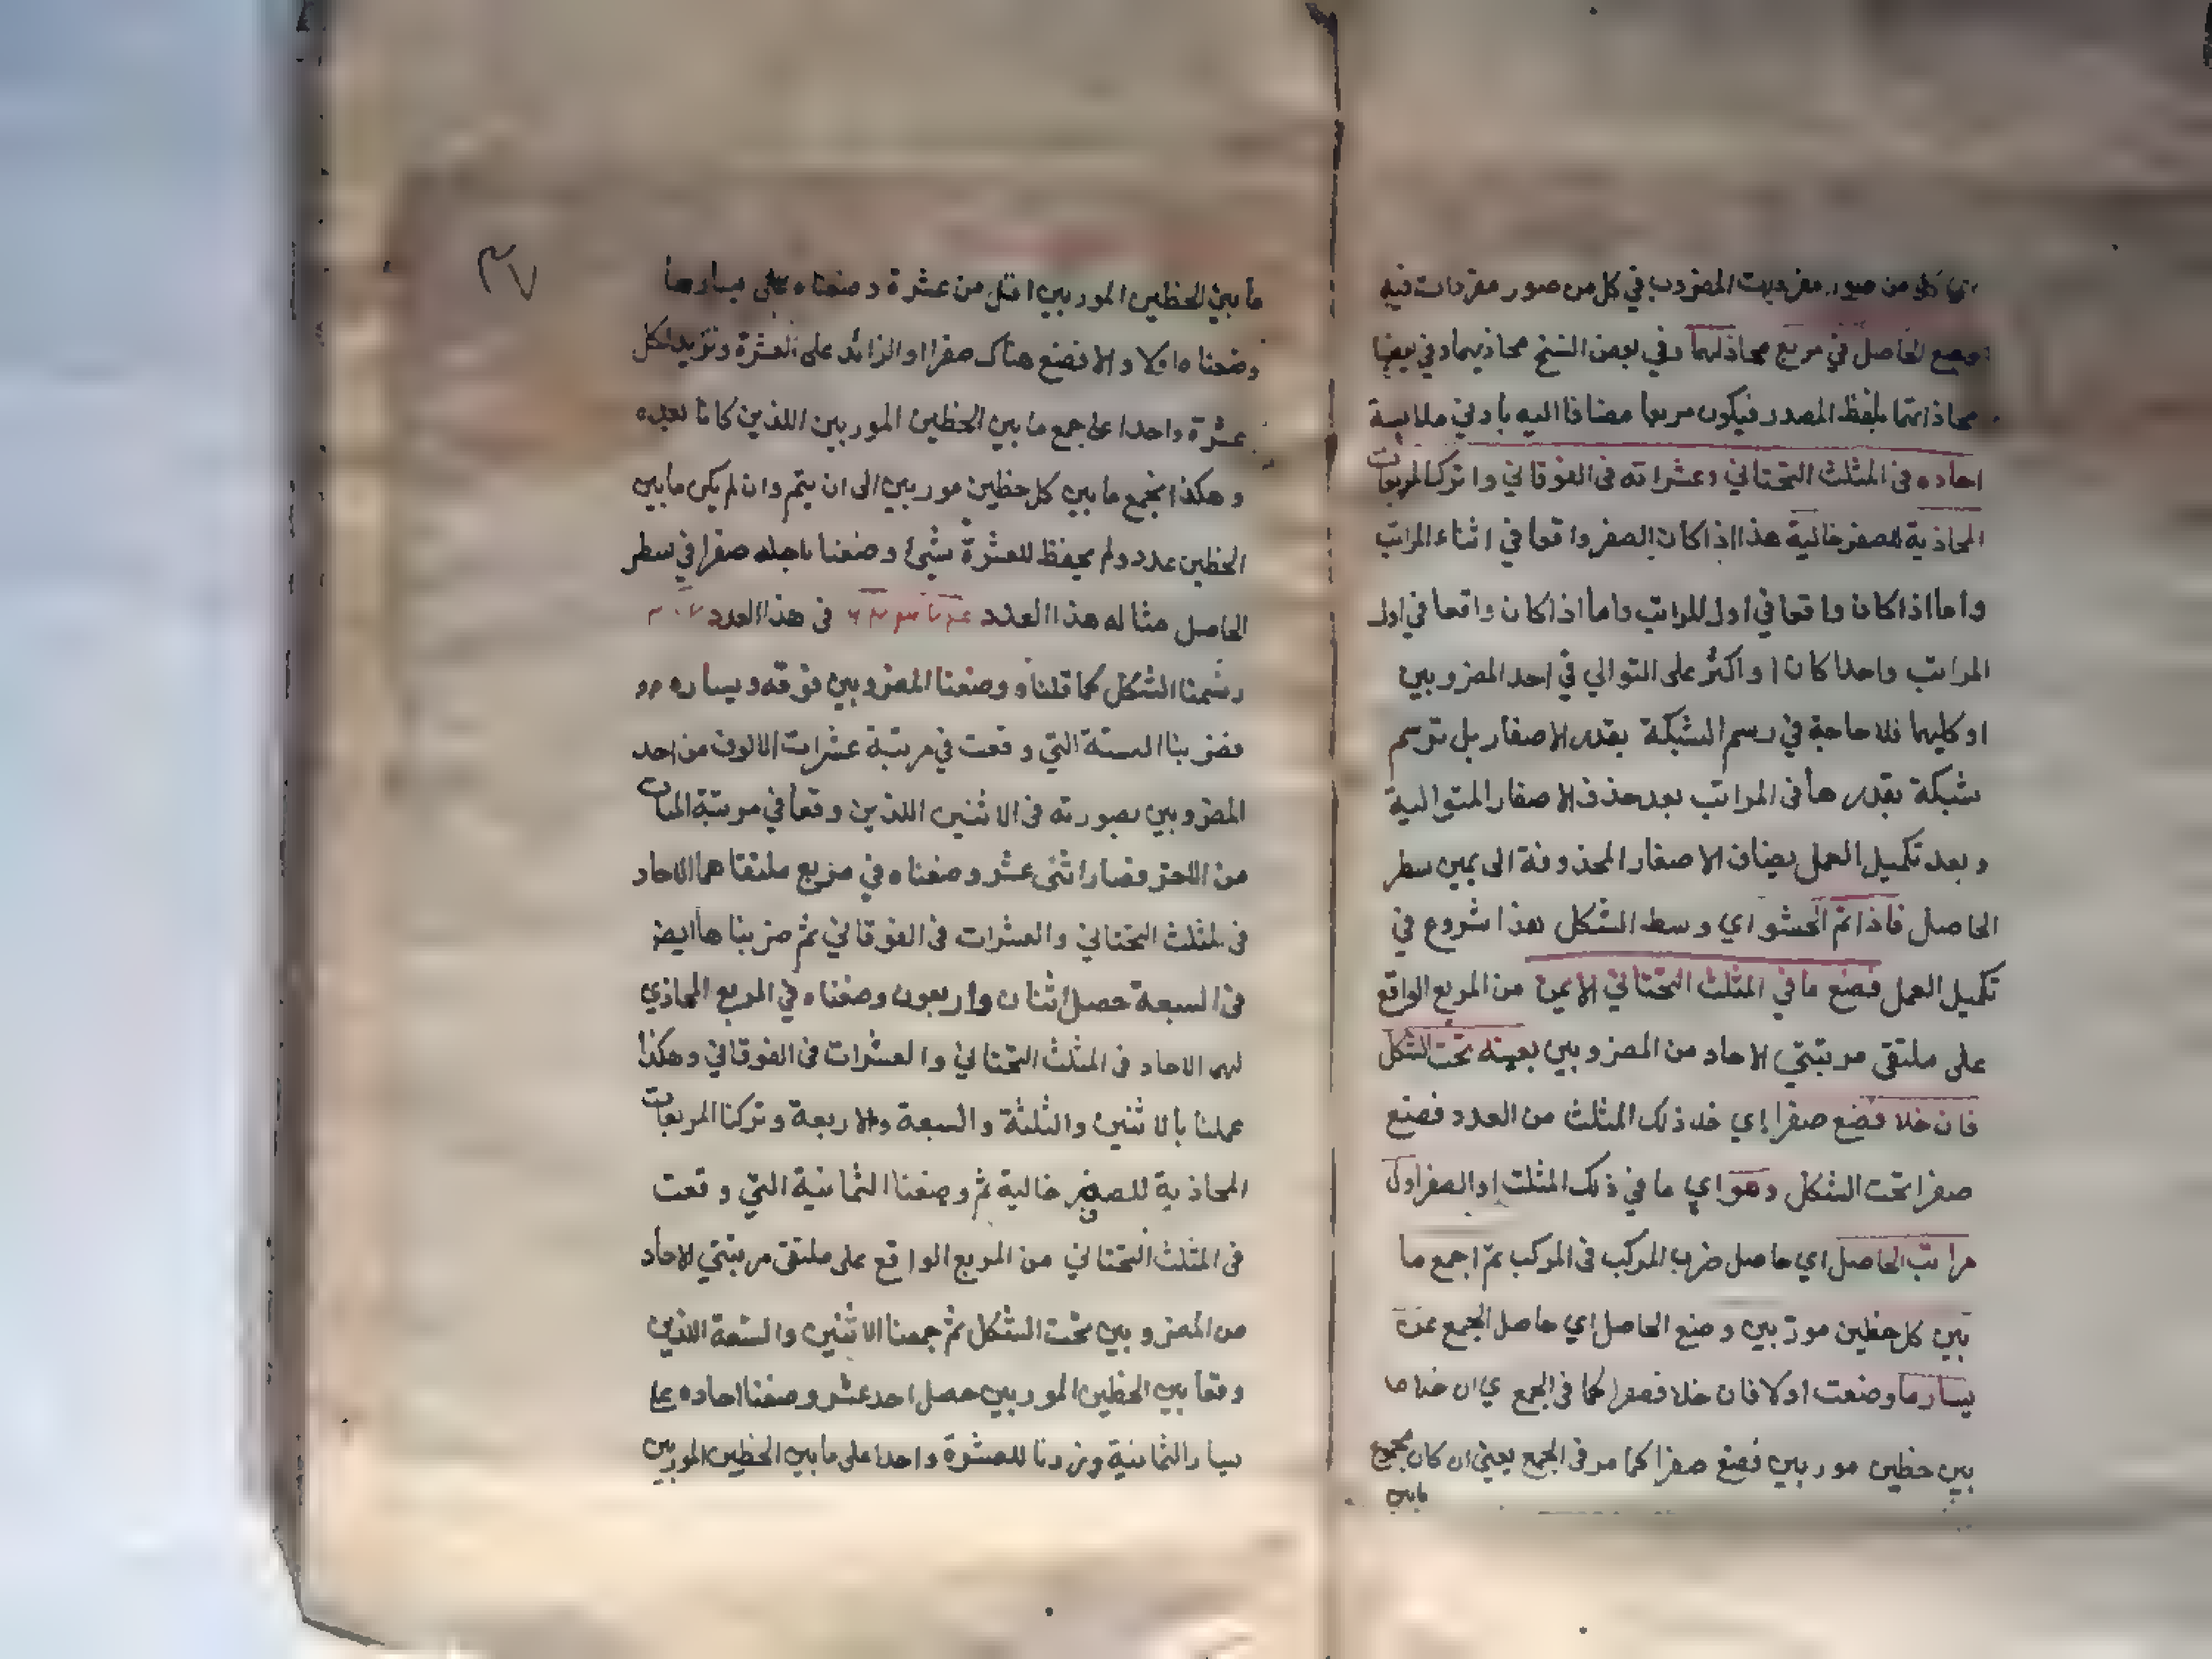 كل من صور مفردات المضروب في كل من صور مفردات فيه
وضع الحاصل في مربع محاذ لهما وفي بعض النسخ محاذيهما وفي بعضها
محاذاتهما بلفظ المصدر فيكون مربعا مضافا اليه بادنى ملابسة
احاده فى المثلث التحتاني وعشراته فى الفوقاني واترك المربعات
المحاذية للصفر خالية هذا اذا كان الصفر واقعا في اثناء المراتب
واما اذا كان واقعا في اول المراتب واما اذا كان واقعا في اول
المراتب واحدا كان او اكثر على التوالي في احد المضروبين
او كليهما فلا حاجة في رسم الشبكة بقدر الاصفار بل ترسم
شبكة بقدرها فى المراتب بعد حذف الاصفار المتوالية
وبعد تكميل العمل يضاف الاصفار المحذوفة الى يمين سطر
الحاصل فاذا تم الحشو اي وسط الشكل هذا شروع في
تكميل العمل فضع ما في المثلث التحتاني الايمن من المربع الواقع
على ملتقى مرتبتي الاحاد من المضروبين بعينه تحت الشكل
فان خلا فضع صفرا اي خلا ذلك المثلث من العدد فضع
صفرا تحت الشكل وهو اي ما في ذلك المثلث او الصفر اول
مراتب الحاصل اي حاصل ضرب المركب فى المركب ثم اجمع ما
بين كل خطين موربين وضع الحاصل اي حاصل الجمع عن
يسار ما وضعت اولا فان خلا فصفرا كما فى الجمع اي ان خلا ما
بين خطين موربين فضع صفرا كما مر فى الجمع يعني ان كان مجموع
مابين
٣٧
ما بين الخطين الموربين اقل من عشرة وضعناه على يسار ما
وضعناه اولا والا فضع هناك صفرا او الزائد على العشرة ونزيد لكل
عشرة واحدا على جمع ما بين الخطين الموربين اللذين كانا بعده
وهكذا نجمع ما بين كل خطين موربين الى ان يتم وان لم يكن ما بين
الخطين عدد ولم يحفظ للعشرة شيئ وضعنا صفرا في سطر
الحاصل مثاله هذا العدد في هذا العدد ٢٠٧
رسمنا الشكل كما قلنا ووضعنا المضروبين فوقه ويساره
فضربنا الستة التي وقعت في مرتبة عشرات الالوف من احد
المضروبين بصورته فى الاثنين اللذين وقعا في مرتبة المات
من الاخر فصار اثنى عشر وضعناه في مربع ملتقاهما الاحاد
فى المثلث التحتاني والعشرات فى الفوقاني ثم ضربناها ايضا
فى السبعة حصل اثنان واربعون وضعناه في المربع المحاذي
لهما الاحاد فى المثلث التحتاني والعشرات فى الفوقاني وهكذا
عملنا بالاثنين والثلثة والسبعة والاربعة وتركنا المربعات
المحاذية للصفر خالية ثم وضعنا الثمانية التي وقعت
فى المثلث التحتاني من المربع الواقع على ملتقى مرتبتي الاحاد
من المضروبين تحت الشكل ثم جمعنا الاثنين والتسعة اللذين
وقعا بين الخطين الموربين حصل احد عشر وضعنا احاده على
يسار الثمانية وزدنا للعشرة واحدا على ما بين الخطين الموربين